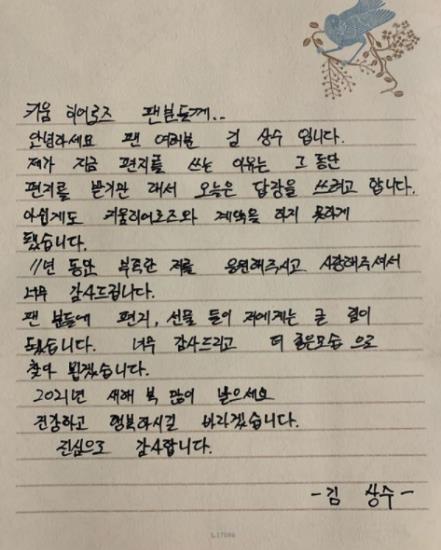 키움 히어로즈 팬분들께..
안녕하세요 팬 여러분 김 상수 입니다.
제가 지금 편지를 쓰는 이유는 그 동안
편지를 받기만 해서 오늘은 답장을 쓰려고 합니다.
아쉽게도 키움히어로즈와 계약을 하지 못하게
됐습니다.
11년 동안 부족한 저를 응원해주시고 사랑해주셔서
너무 감사드립니다.
팬 분들에 편지, 선물 들이 저에게는 큰 힘이
되었습니다. 너무 감사드리고 더 좋은모습 으로
찾아 뵙겠습니다.
2021년 새해 복 많이 받으세요
건강하고 행복하시길 바라겠습니다.
진심으로 감사합니다.
-김 상수-